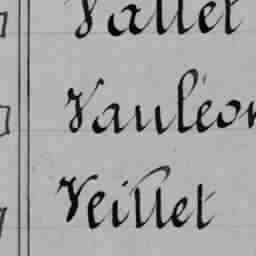 Vallet
Vauléon
Veillet